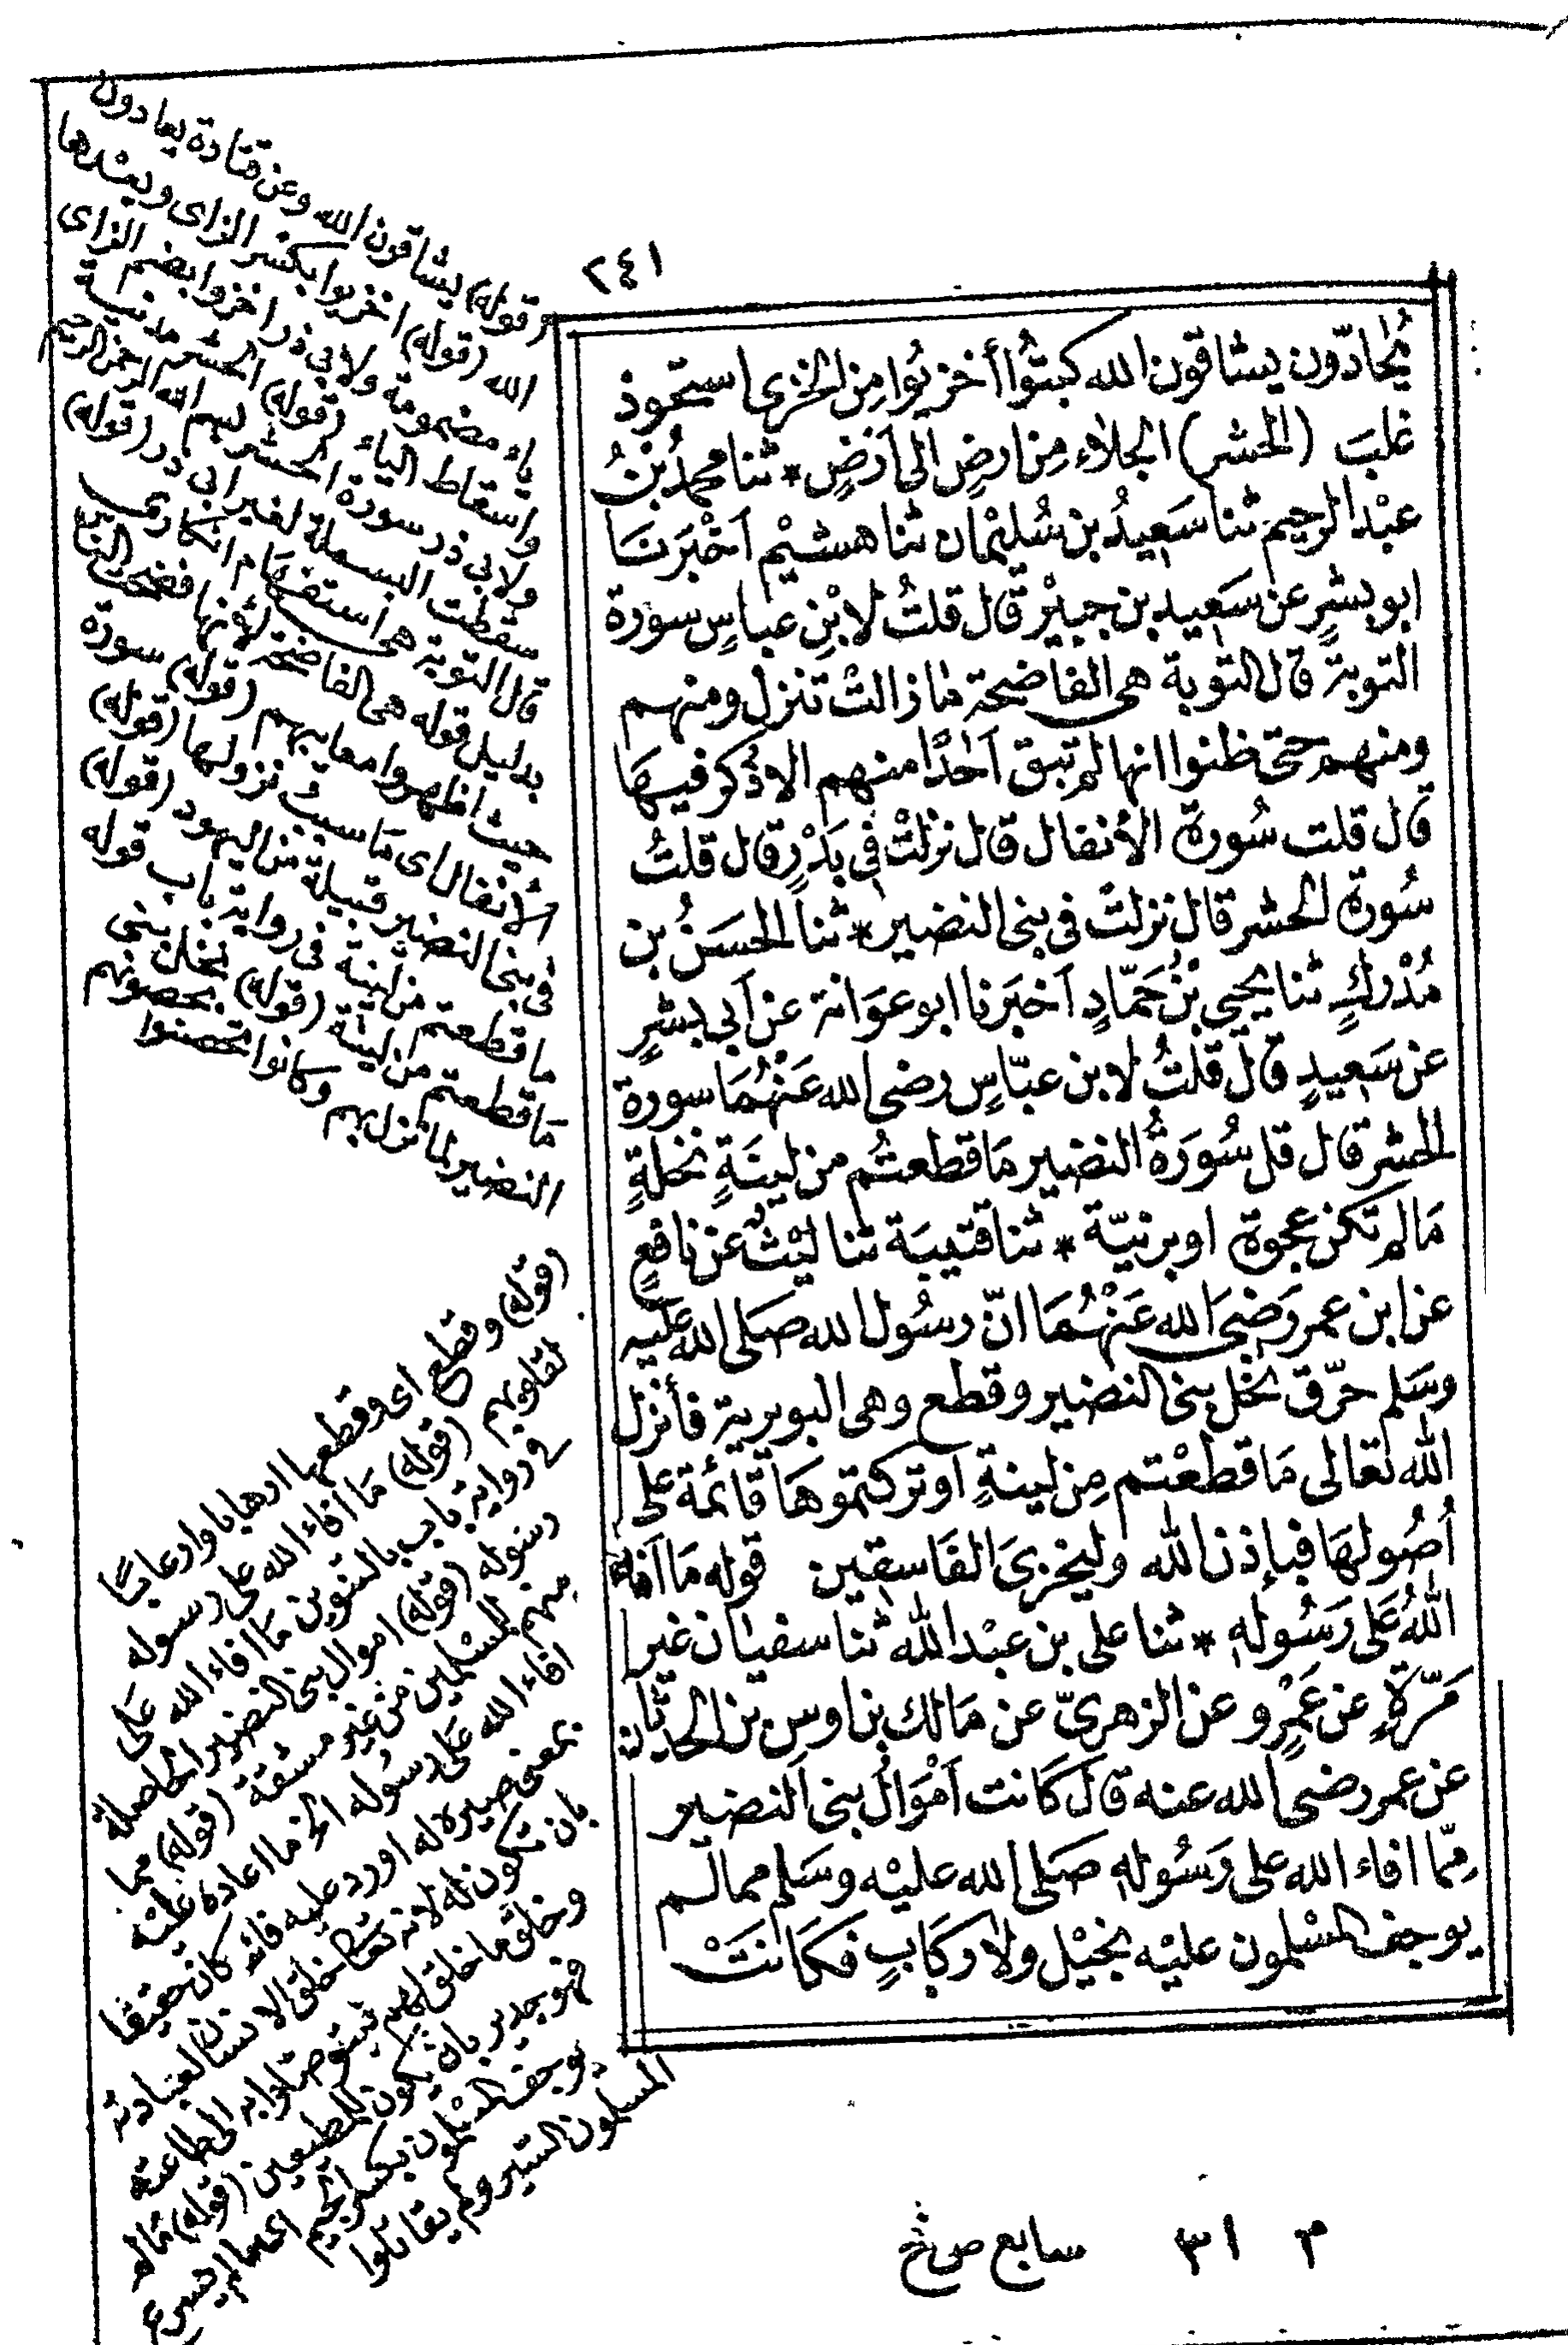 ٢٤١
يُحادّون يشاقون الله كبتُوا أخزيُوا مِن الخزى استحوذ
غلبَ (الحشر) الجلاء مِن ارضٍ الى اَرْضٍ * ثنا محمدُ بْنُ
عبْد الرحيم ثنا سَعِيدُ بن سُليْمان ثنا هشيْم اَخْبَرَنَا
ابو بشرٍ عن سَعِيد بن جبيْر قال قلتُ لابْنِ عباسٍ سورة
التوبة قال التوبة هى الفاضحة ما زالتْ تنزل ومنهم
ومنهم حتى ظنوا انها لم تبق اَحَدًا منهم الا ذُكر فيهَا
قال قلت سُورة الأنفال قال نزلتْ فى بَدْرٍ قال قلتُ
سُورة الحشر قال نزلتْ فى بنى النضير * ثنا الحسَنُ بن
مُدْركٍ ثنا يحيى بْنُ حَمّادٍ اَخبَرنا ابو عوَانة عن اَبى بشرٍ
عن سَعِيدٍ قال قلتُ لابن عبّاسٍ رضى الله عَنْهُمَا سورة
الحشر قال قل سُورَةُ النضير مَا قطعتُم من لينَةٍ نخلةٍ
مَا لم تكن عجوة او برنيّة * ثنا قتيبَة ثنا ليْثٌ عن نافعٍ
عن ابن عمر رَضىَ الله عَنْهُمَا انّ رسُول الله صَلى الله عليه
وسَلم حرّق نخل بنى النضير وقطع وهى البويرية فأنزل
الله تعالى مَا قطعْتم مِن لينةٍ اَو تركتموهَا قائمَة على
اُصُولهَا فبإذن الله وليخزىَ الفَاسِقين قوله مَا اَفاء
اللهُ عَلى رَسُولهِ * ثنا على بن عبْد الله ثنا سفيَان غير
مَرّةٍ عن عَمْرٍو عن الزهرىّ عن مَالك بن اوسِ بن الحدثان
عن عمر رضى الله عنه قال كَانت اَمْوَالُ بنى النضير
مِمّا افاء الله على رَسُولهِ صَلى الله عليْه وسَلم مما لم
يوجف المسْلمون عليْه بخيْل ولا ركَابٍ فكَانَتْ
(قوله) يشاقون الله وعن قتادة يعادون
الله (قوله) اخزيوا بكسْر الزاى وبعْدها
ياء مضمومة ولابى ذر اخزوا بضم الزاى
واسقاط الياء (قوله) الحشر مدنية
ولابى ذر سورة الحشر بسم الله الرحمن الرحيم
سقطت البسملة لغير ابى ذر (قوله)
قال التوبة هى استفهام انكارى
بدليل قوله هى الفاضحة لأنها فضحت الناس
حيث اظهروا معايبهم (قوله) سورة
الأنفال اى مَا سبب نزولها (قوله)
فى بنى النضير قبيلة من اليهود (قوله)
ما قطعتم من لينة فى رواية باب قوله
مَا قطعتم من لينة (قوله) نخل بنى
النضير لما نزل بهم وكانوا تحصنوا بحصونهم
(قوله) وقطع اى وقطعها ارهابا وارعابًا
لقلوبهم (قوله) مَا أفاء الله على رسوله
فى رواية باب بالتنوين مَا افاء الله عَلى
رسوله (قوله) اموال بنى النضير الحاصلة
منهم للمسْلمين من غير مشقة (قوله) مما
افاء الله عَلى رسُوله اى مما اعاده عليْه
بمعنى صيره له او رد عليه فانه كان حقيقا
بان تكون له لانه تعالى خلق الانسان لعبادته
وخلق ما خلق لهم ليتوصّلوا به الى طاعته
فهو جدير بان يكون للمطيعين (قوله) مما لم
يوجف المسْلمون بكسر الجيم اى مما لم يسرع
المسلمون السّير ولم يقاتلوا
م ٣١ سابع ص خ